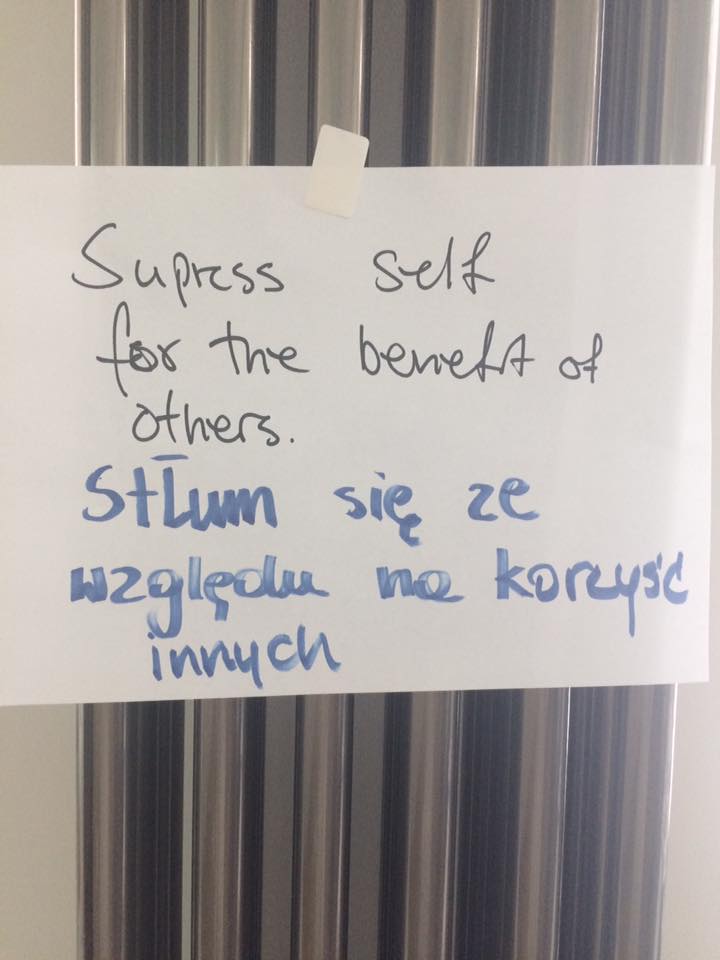 Supress self
for the benefit of
others.
Stłum się ze
względu na korzyść
innych